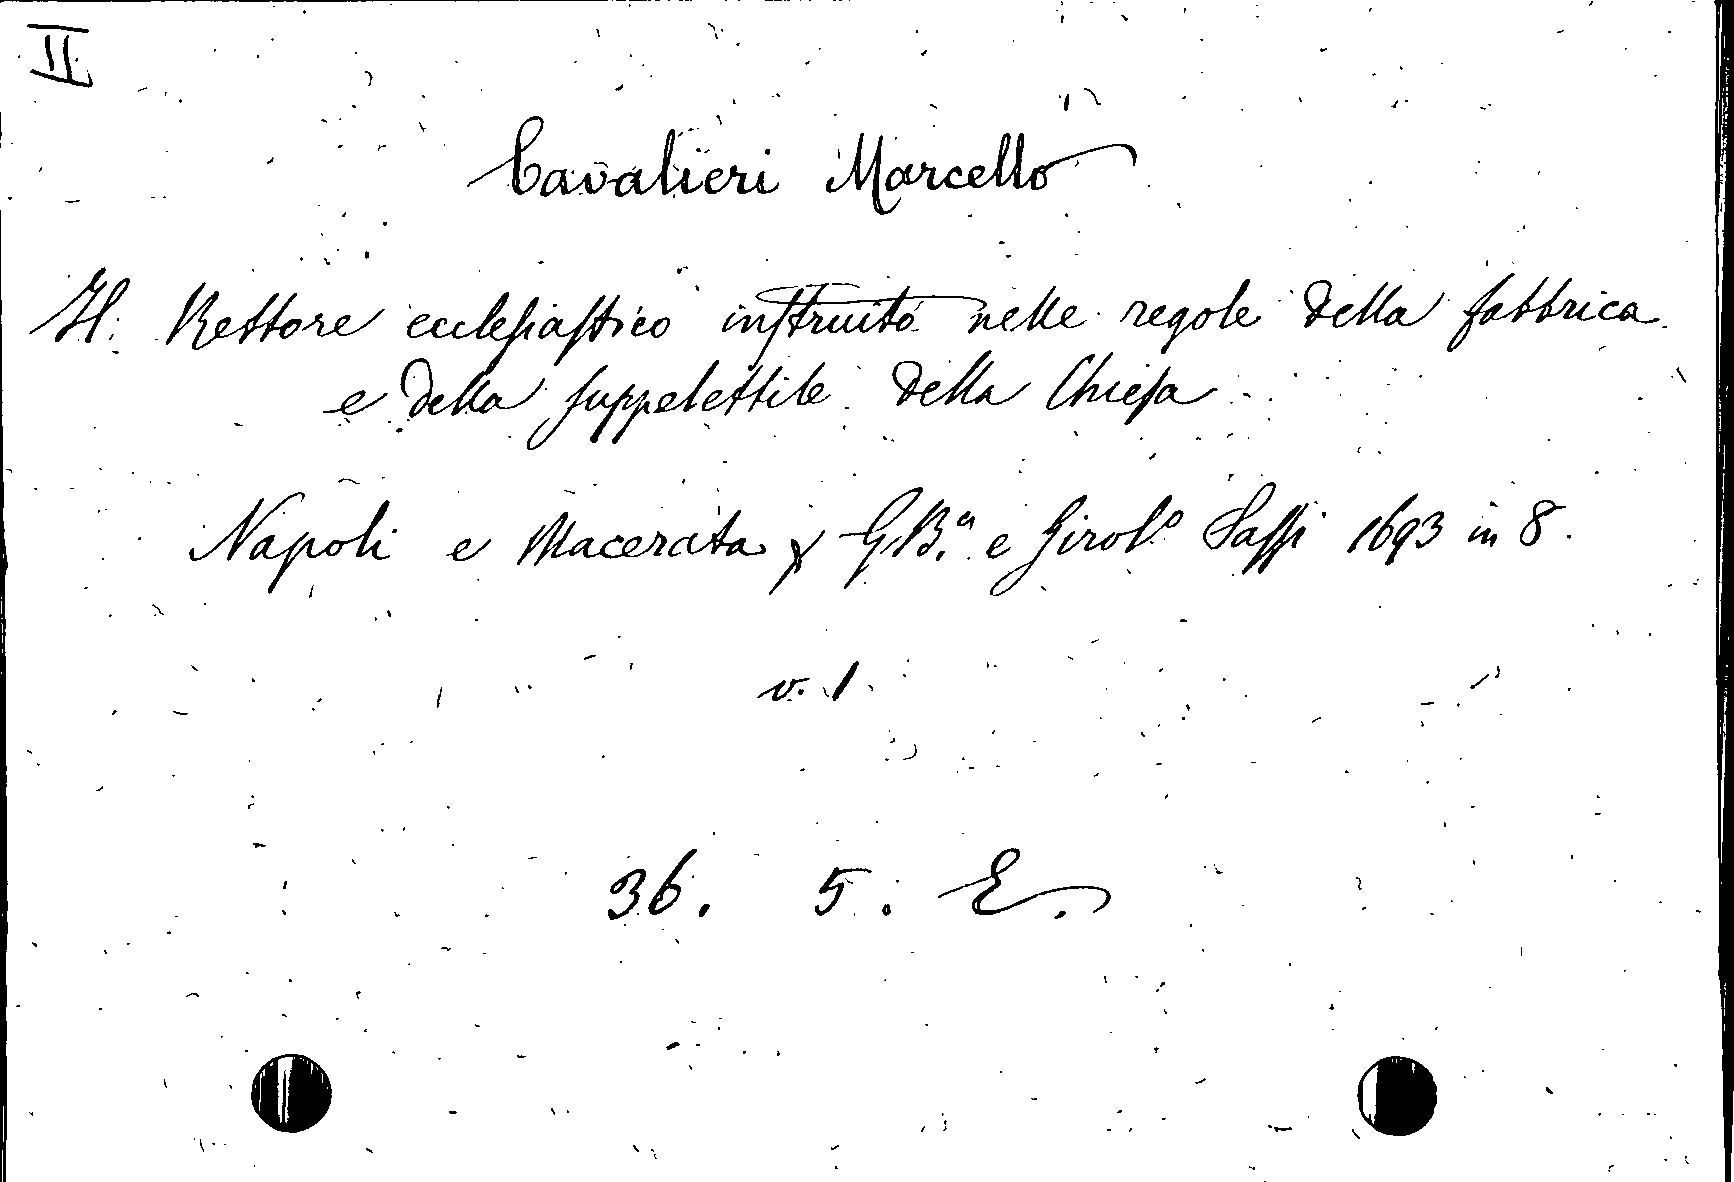 II
Cavalieri Marcello
Il Rettore ecclesiastico instruito nelle regole della fabbrica
e della suppelettile della Chiesa
Napoli e Macerata x G.B.a e Girol.o Sassi 1693 in 8.
v. 1.
36. 5. E.